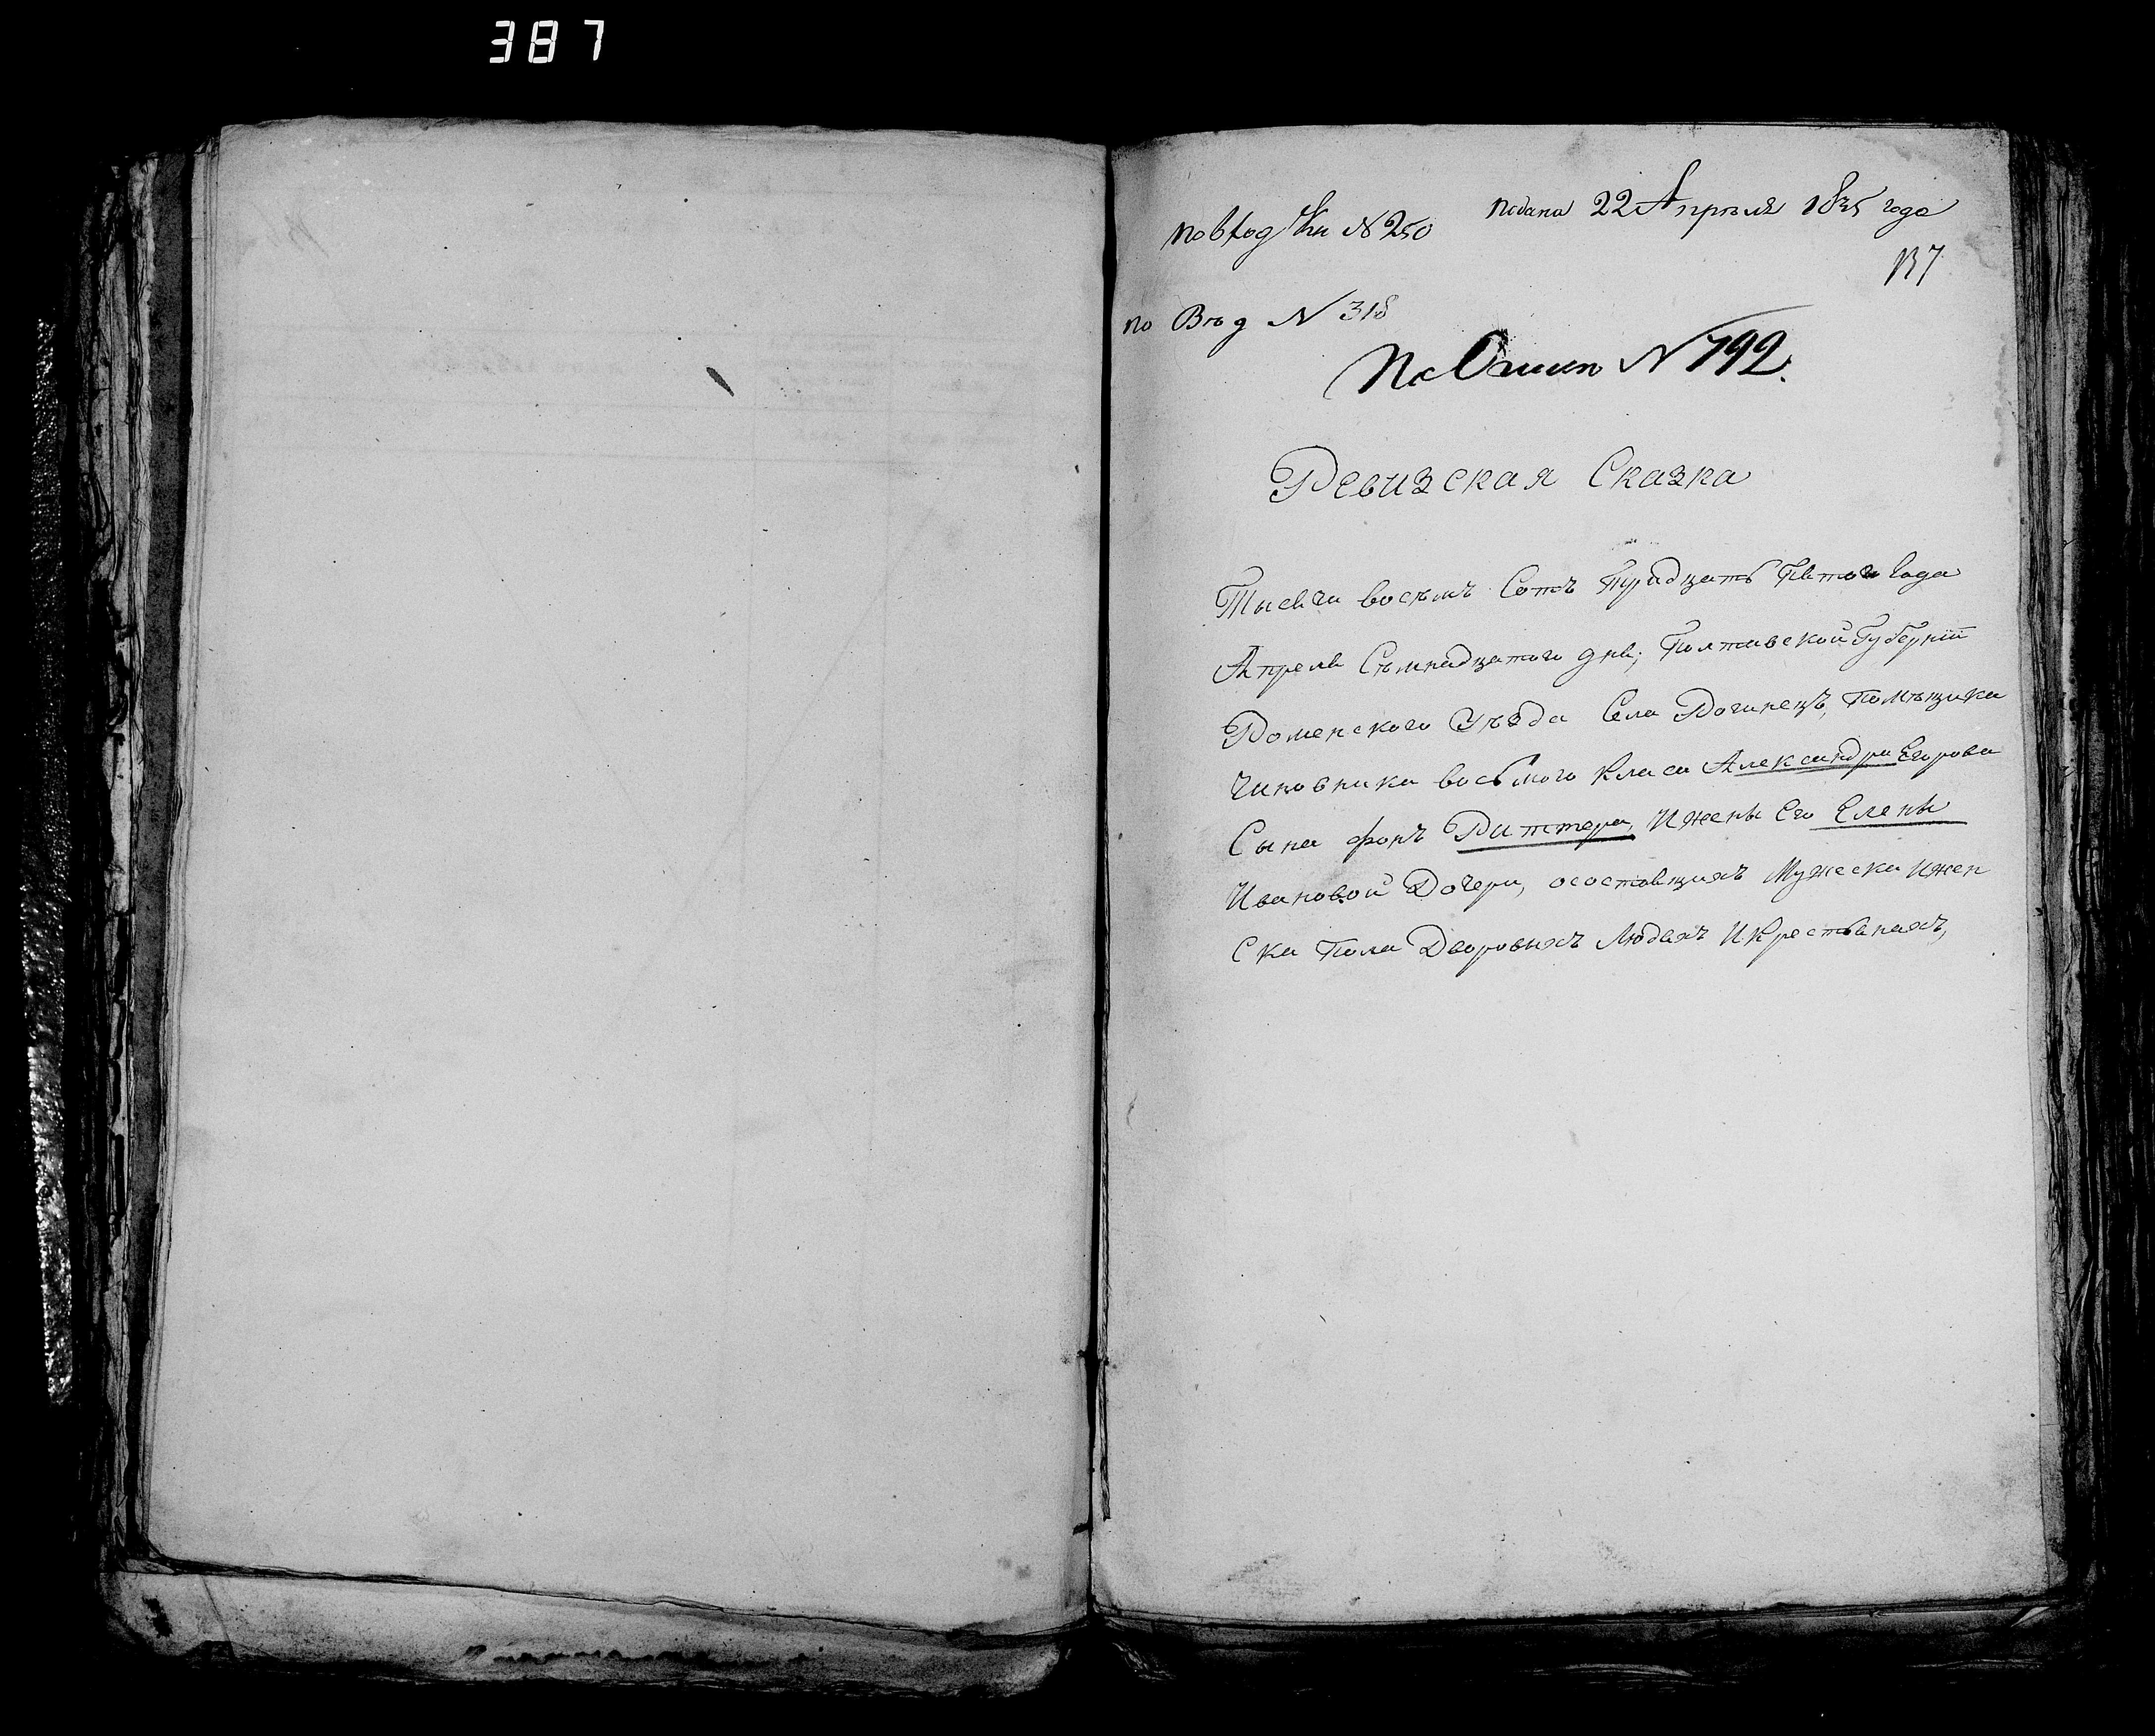 387
подана 22 Апреля 1835 года
по вход Кн №250
137
по Вѣд № 318
По Описи №792.
Ревизская Сказка
Тысяча восемъ Сотъ Тридцать Пятого Года
Апреля Семнадцатого дня; Полтавской Губерніи
Роменского Уѣзда Села Рогинецъ, Помѣщика
Чиновника восьмого класа Александра Егорова
Сына фонъ Риттера, И жены Его Елены
Ивановой Дочери, осостоящихъ Мужеска Ижен
Ска Пола Дворовыхъ Людяхъ ИКрестьянахъ,